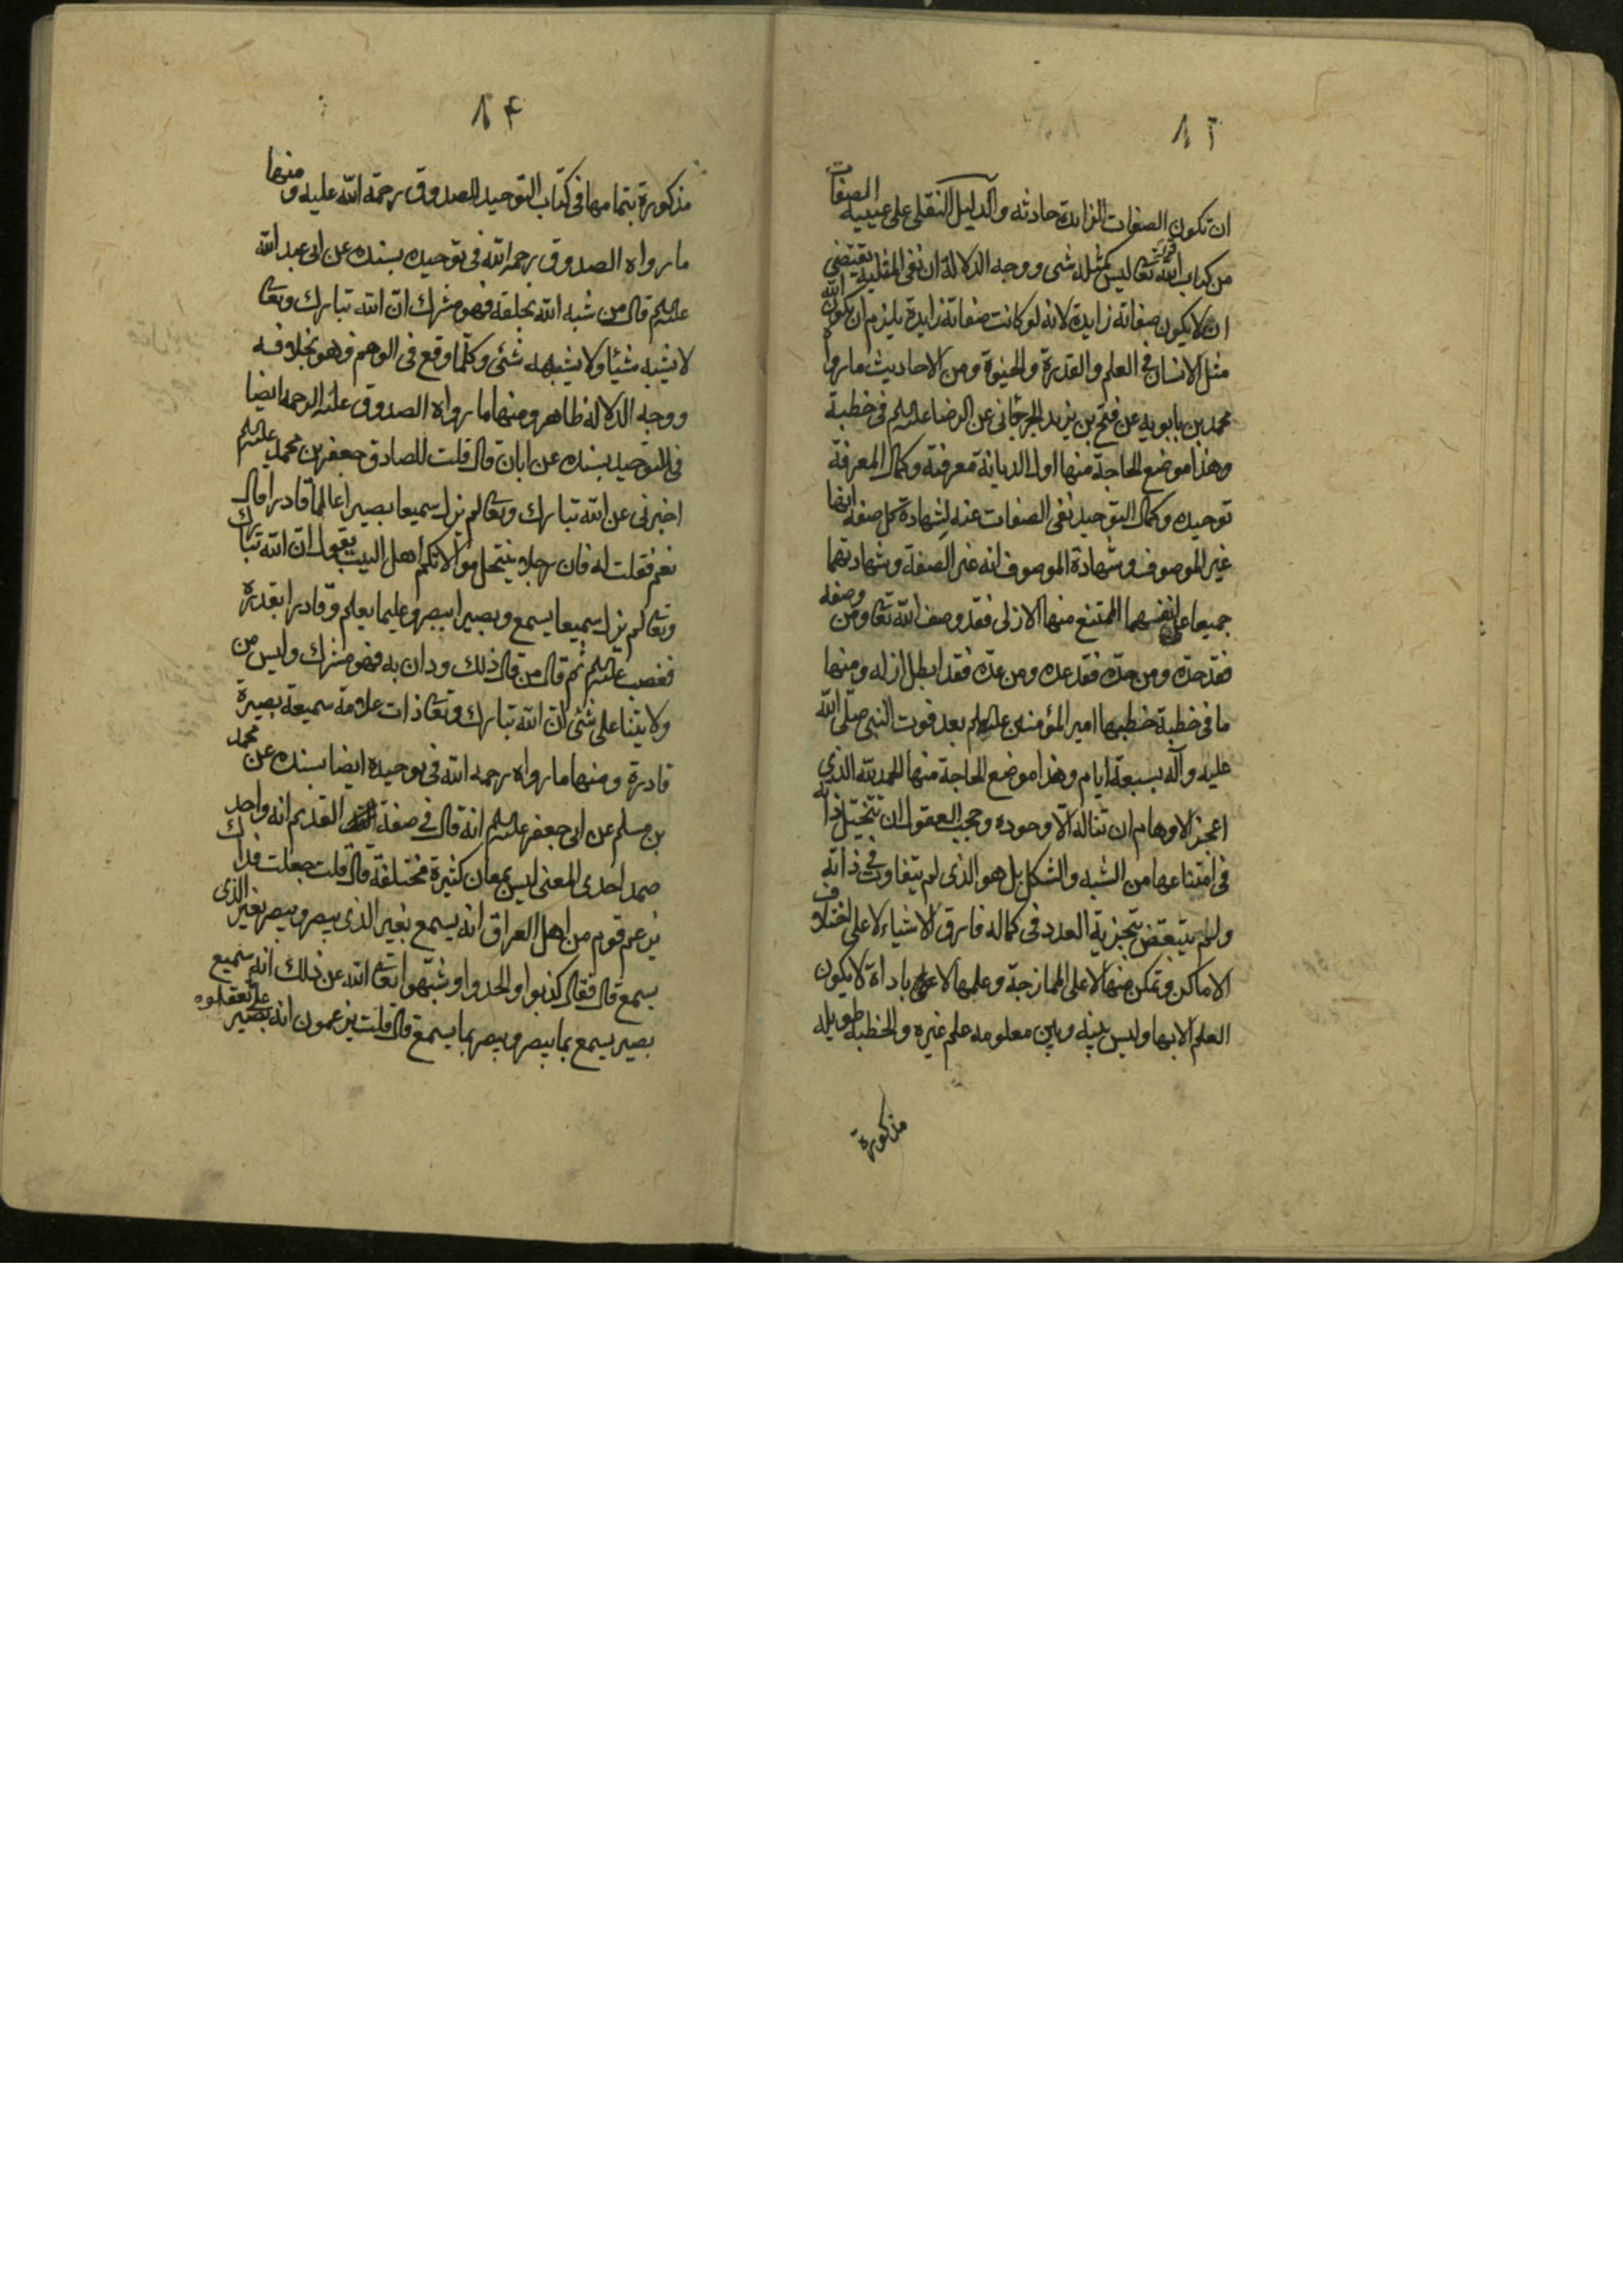 ٨٣
ان تكون الصفات الزايدة حادثه والدليل النقلى على عينية الصفات
من كتاب الله قوله تعا ليس كمثله شى ووجه الدلالة ان نفى المثلية يقتضى
ان لا يكون صفاته زايدة لانه لو كانت صفاته زايدة يلزم ان يكون الله
مثل الانسان فى العلم والقدرة والحيوة ومن الاحاديث ما رواه
محمد بن بابويه عن فتح بن يزيد الجرجانى عن الرضا عليه السلم فى خطبة
وهذا موضع الحاجة منها اول الديانة معرفته وكمال المعرفة
توحيده وكمال التوحيد نفى الصفات عنه لشهادة كل صفة انها
غير الموصوف وشهادة الموصوف انه غير الصفة وشهادتهما
جميعا على انفسهما الممتنع منها الازلى فقد وصف الله تعا ومن وصفه
فقد حده ومن حده فقد عده ومن عده فقد ابطل ازله ومنها
ما فى خطبة خطبها امير المؤمنين عليه السلم بعد فوت النبى صلى الله
عليه وآله بسبعة ايام وهذا موضع الحاجة منها الحمد لله الذى
اعجز الاوهام ان تناله الا وجوده وحجب العقول ان تتخيل ذاته
فى امتناعها من الشبه والشكل بل هو الذى لم يتفاوت فى ذاته
ولم يتبعض بتجزية العدد فى كماله فارق الاشياء لا على اختلاف
الاماكن وتمكن منها لا على الممازجة وعلمها لا على باداة لا يكون
العلم الا بها وليس بينه وبين معلومه علم غيره والخطبة طويله
مذكورة
٨٤
مذكورة بتمامها فى كتاب التوحيد للصدوق رحمة الله عليه ومنها
ما رواه الصدوق رحمه الله فى توحيده بسنده عن ابى عبد الله
عليه السلم قال من شبه الله بخلقه فهو مشرك ان الله تبارك وتعا
لا يشبه شيئا ولا يشبهه شئى وكلما وقع فى الوهم فهو بخلافه
ووجه الدلالة ظاهر ومنها ما رواه الصدوق عليه الرحمه ايضا
فى التوحيد بسنده عن ابان قال قلت للصادق جعفر بن محمد عليه السلم
اخبرنى عن الله تبارك وتعا لم يزل سميعا بصيرا عالما قادرا قال
نعم فقلت له فان رجلا ينتحل موالاتكم اهل البيت يقول ان الله تبارك
وتعا لم يزل سميعا يسمع وبصيرا ببصر وعليما بعلم وقادرا بقدرة
فغضب عليه السلم ثم قال من قال ذلك ودان به فهو مشرك وليس من
ولايتنا على شئى ان الله تبارك وتعا ذات علامة سميعة بصيرة
قادرة ومنها ما رواه رحمه الله فى توحيده ايضا بسنده عن محمد
بن مسلم عن ابى جعفر عليه السلم انه قال فى صفة القديم انه واحد
صمد احدى المعنى ليس بمعان كثيرة مختلفة قال قلت جعلت فداك
يزعم قوم من اهل العراق انه يسمع بغير الذى يبصر ويبصر بغير الذى
يسمع قال فقال كذبوا والحدوا وشبهوا تعا الله عن ذلك انه سميع
بصير يسمع بما يبصر ويبصر بما يسمع قال قلت يزعمون انه بصير على ما يعقلوه